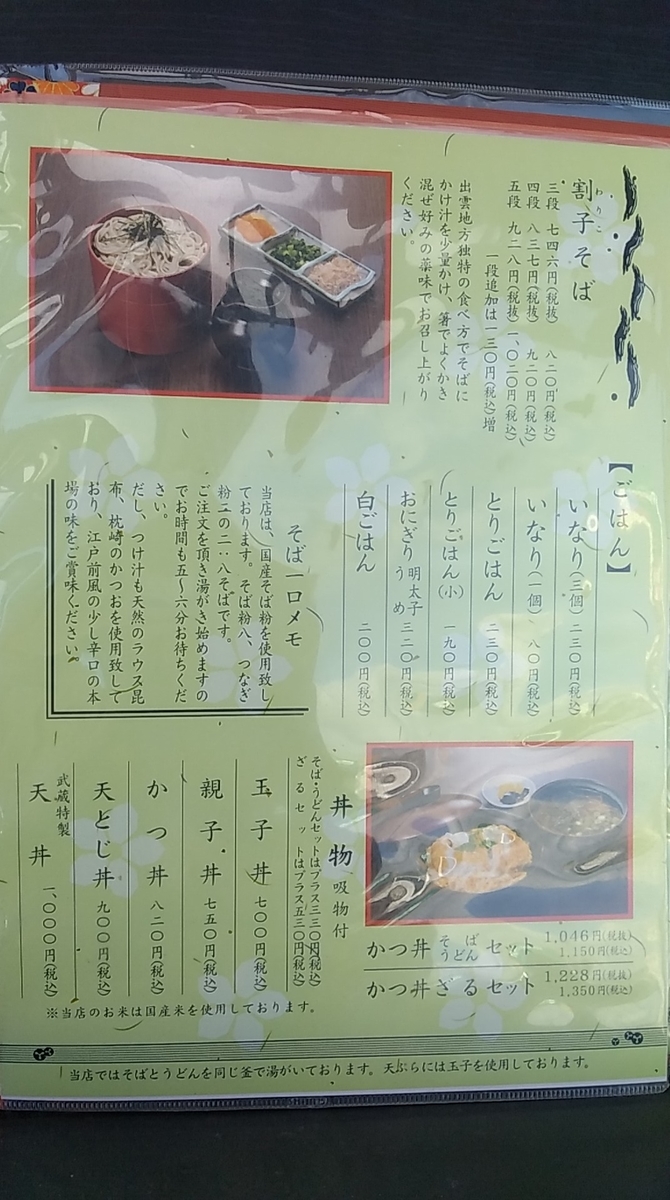 割子そば
わりこ
三段 七四六円(税抜) 八二〇円(税込)
四段 八三七円(税抜) 九二〇円(税込)
五段 九二八円(税抜) 一、〇二〇円(税込)
一段追加は一三〇円(税込)増
出雲地方独特の食べ方でそばに
かけ汁を少量かけ、箸でよくかき
混ぜ好みの薬味でお召し上がり
ください。
【ごはん】
いなり(三個) 二三〇円(税込)
いなり(一個) 八〇円(税込)
とりごはん 二三〇円(税込)
とりごはん(小) 一九〇円(税込)
おにぎり 明太子 うめ 三二〇円(税込)
白ごはん 二〇〇円(税込)
そば一口メモ
当店は、国産そば粉を使用致し
ております。そば粉八、つなぎ
粉二の二:八そばです。
ご注文を頂き湯がき始めますの
でお時間も五〜六分お待ちくだ
さい。
だし、つけ汁も天然のラウス昆
布、枕崎のかつおを使用致して
おり、江戸前風の少し辛口の本
場の味をご賞味ください。
かつ丼 そば うどん セット 1,046円(税抜) 1,150円(税込)
かつ丼ざるセット 1,228円(税抜) 1,350円(税込)
丼物 吸物付
そば・うどんセットはプラス三三〇円(税込)
ざるセットはプラス五三〇円(税込)
玉子丼 七〇〇円(税込)
親子丼 七五〇円(税込)
かつ丼 八二〇円(税込)
天とじ丼 九〇〇円(税込)
武蔵特製
天丼 一、〇〇〇円(税込)
※当店のお米は国産米を使用しております。
当店ではそばとうどんを同じ釜で湯がいております。天ぷらには玉子を使用しております。